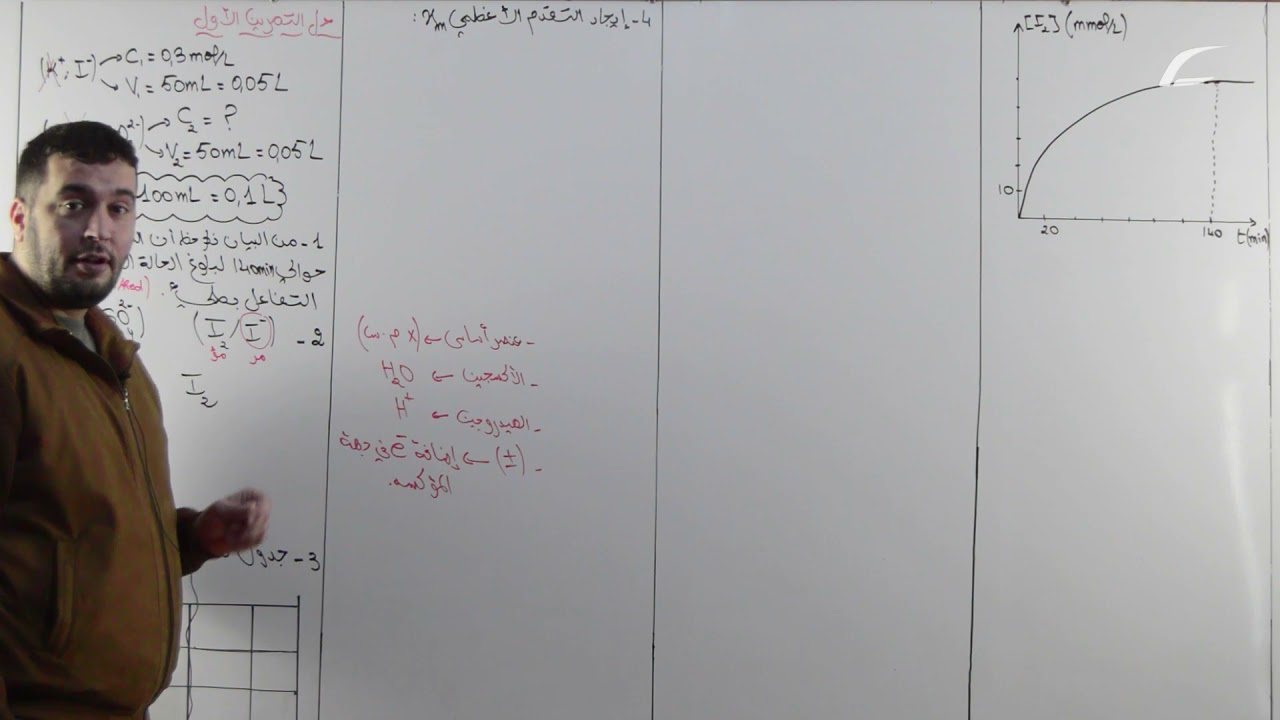 حل التمرين الأول
(K⁺, I⁻) → C₁ = 0,3 mol/L
↘ V₁ = 50mL = 0,05L
O²⁻) → C₂ = ?
↘ V₂ = 50mL = 0,05L
100mL = 0,1L}
1 - من البيان نلاحظ أن
حوالي 140min لبلوغ الحالة
التفاعل بطيء.
2 - (I₂/I⁻)
مؤ مر
I₂
3 - جدول
4 - إيجاد التقدم الأعظمي xₘ :
- عنصر أساسي ←
- الأكسجين ← H₂O
- الهيدروجين ← H⁺
- (±) ← إضافة e⁻ في جهة
المؤكسد.
[I₂] (mmol/L)
10
20
140
t(min)